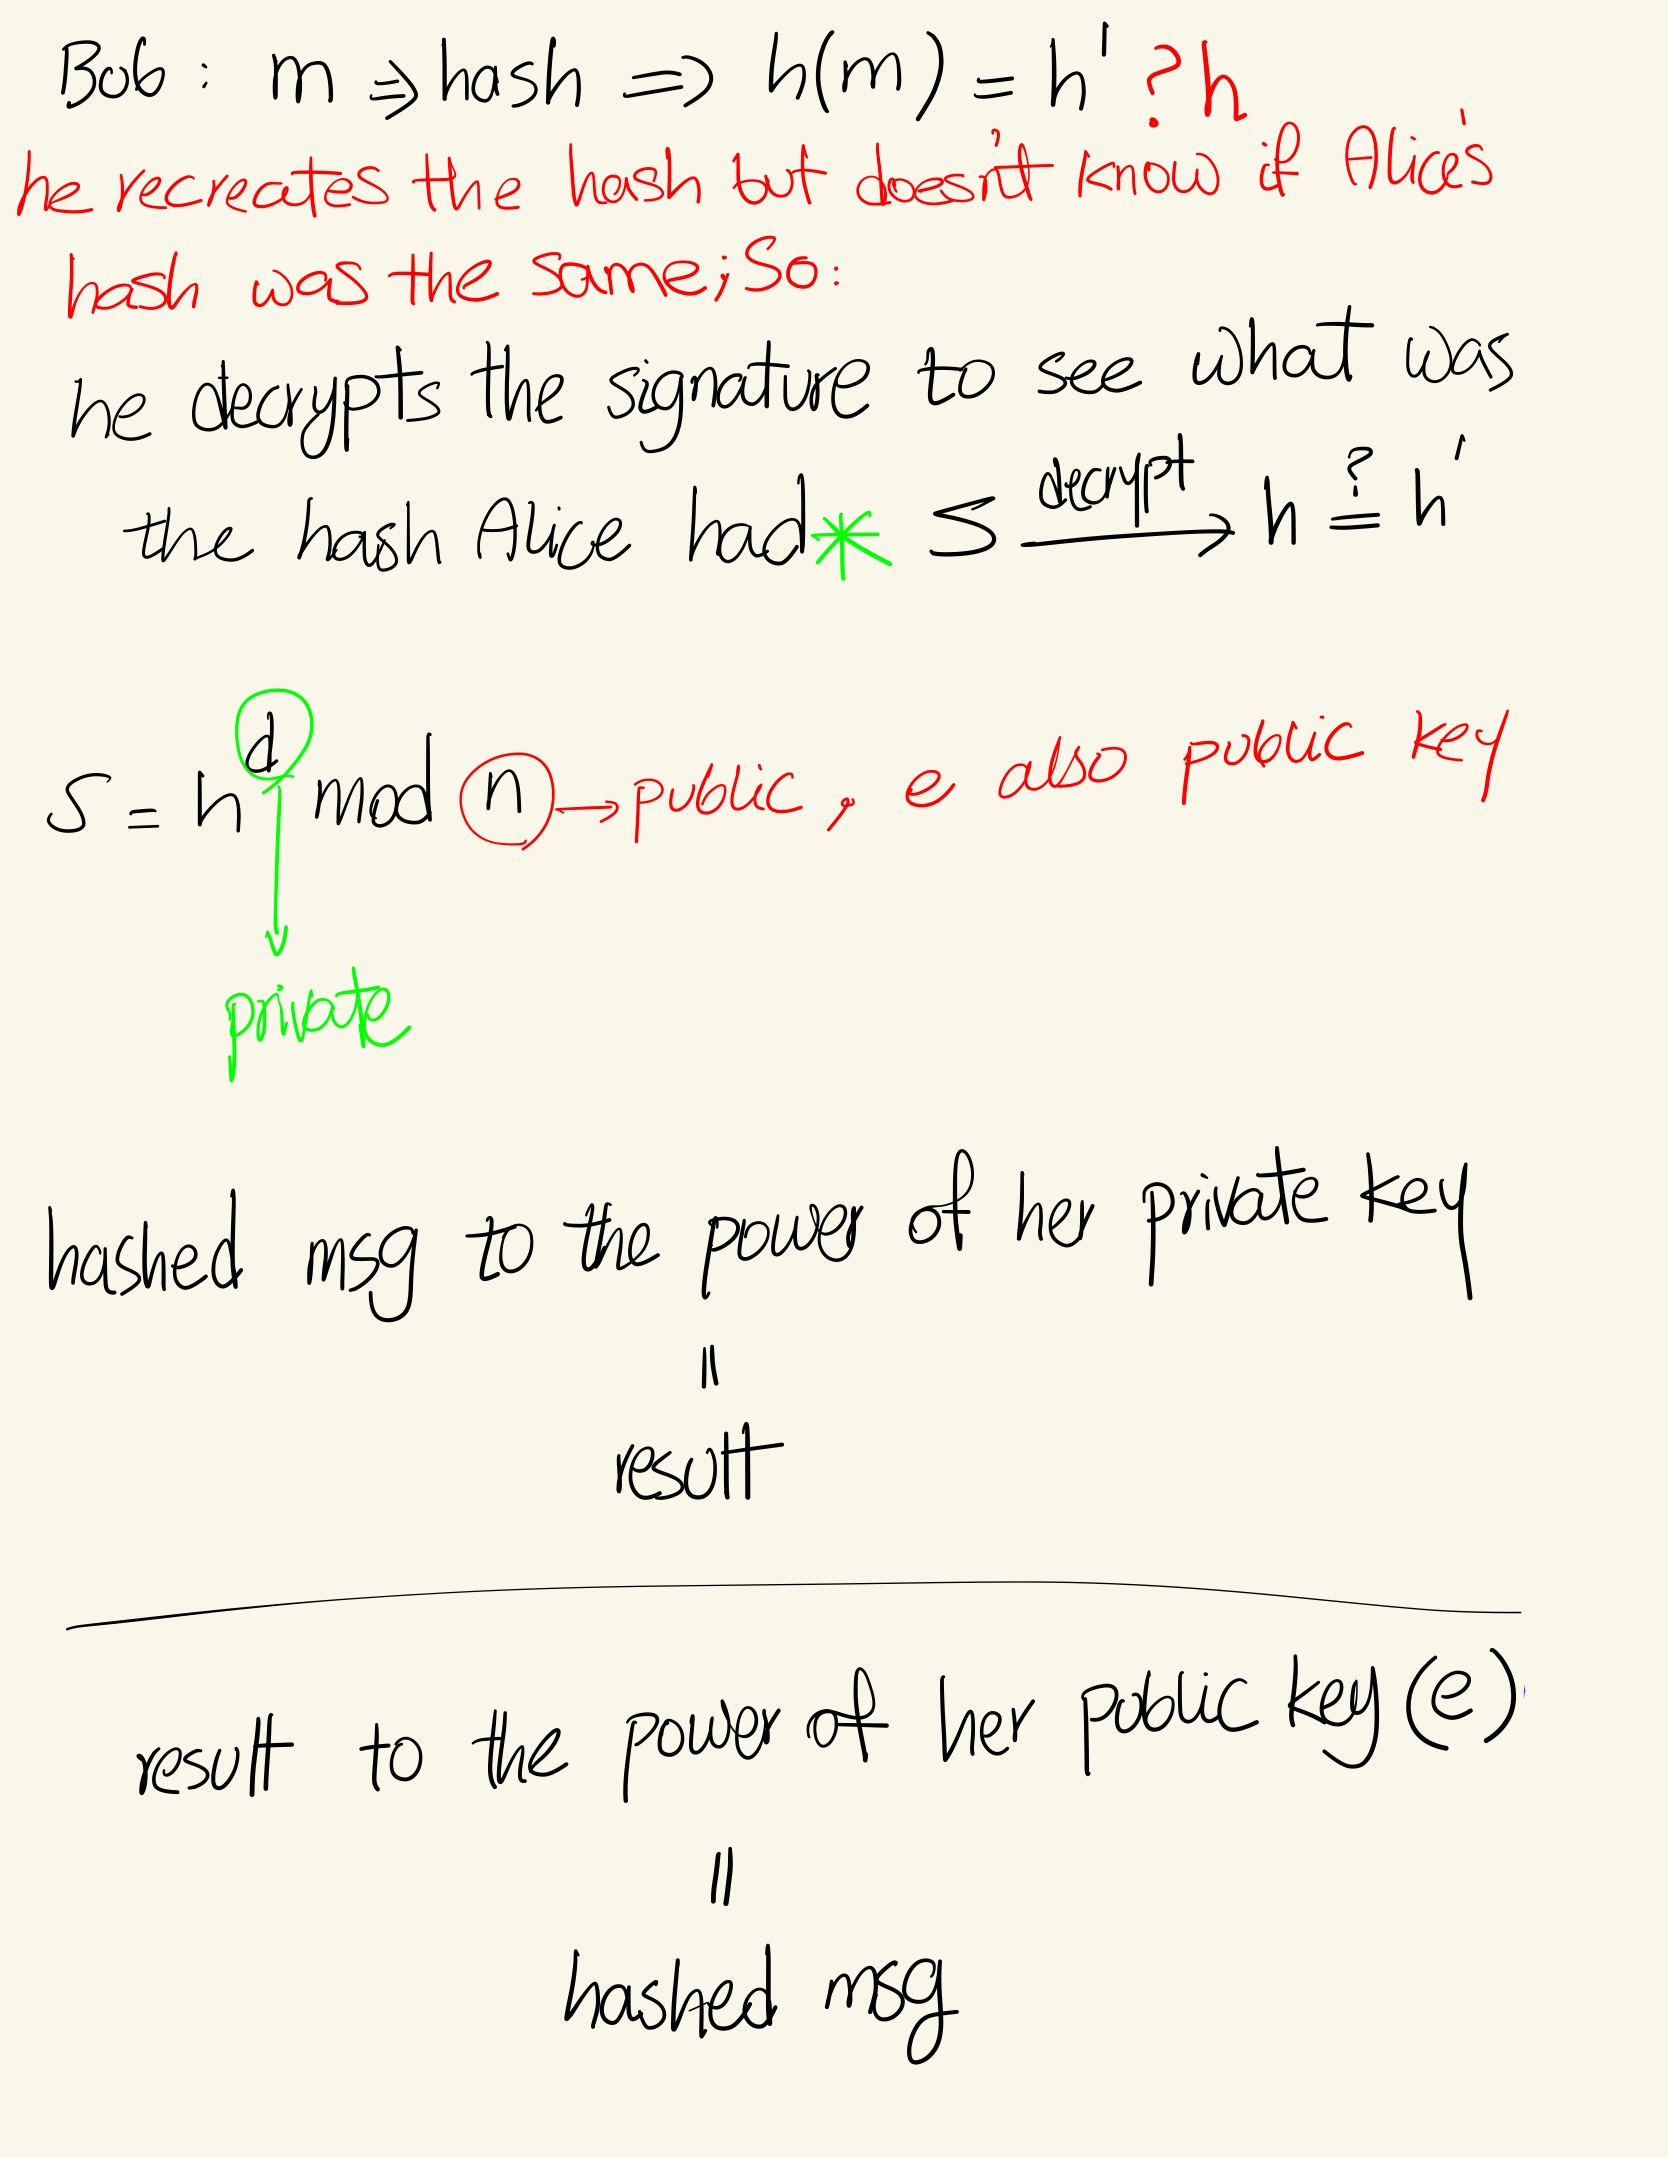 Bob: m ⇒ hash ⇒ h(m) = h' ? h
he recreates the hash but doesn't know if Alice's
hash was the same; So:
he decrypts the signature to see what was
the hash Alice had * S decrypt → h ?= h'
S = h^d mod n → public, e also public key
private
hashed msg to the power of her private key
=
result
result to the power of her public key (e)
=
hashed msg